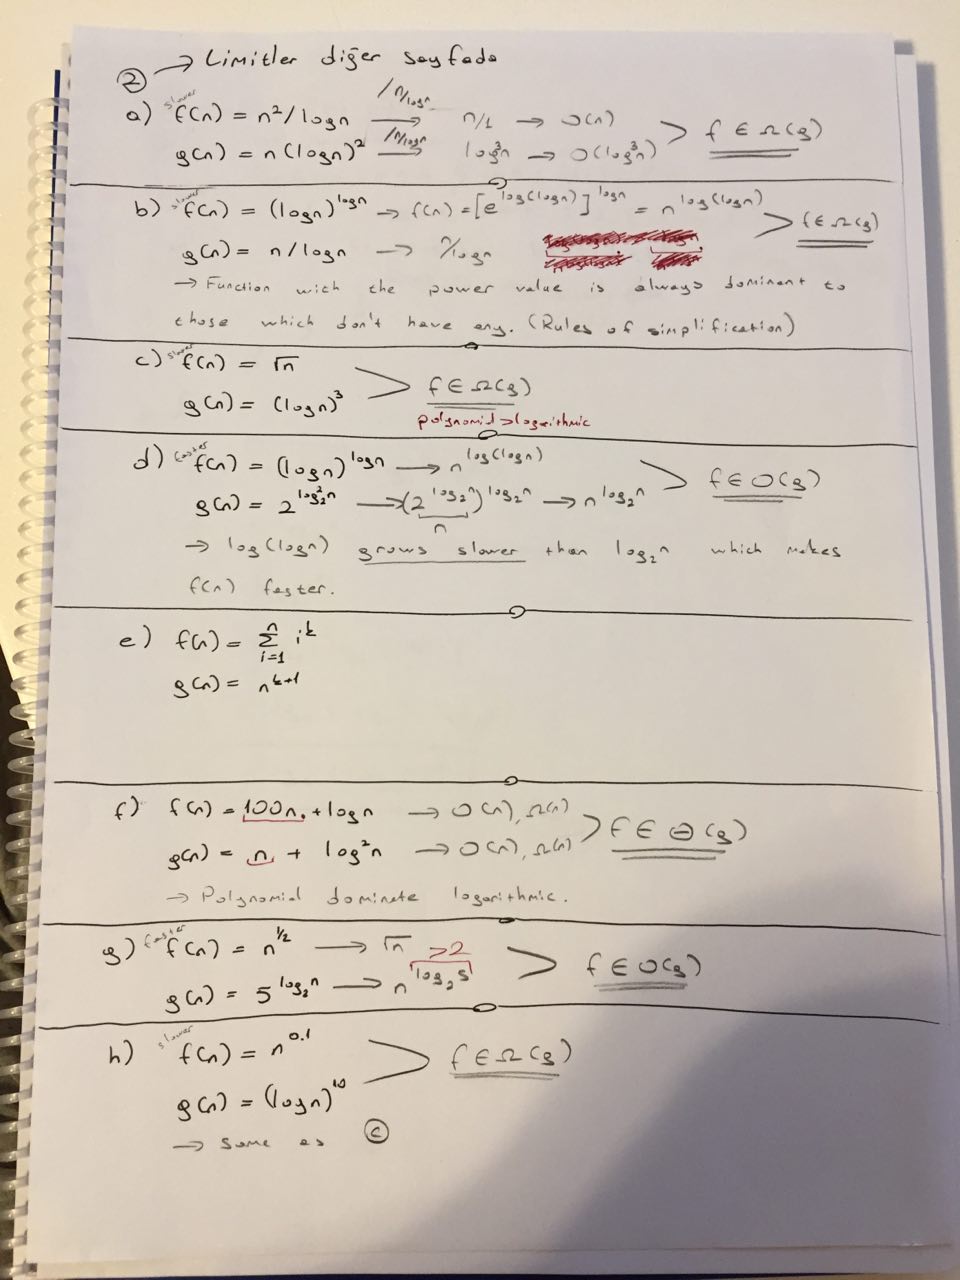 ② → Limitler diğer sayfada
a) slower f(n) = n²/logn —/n/logn→ n/1 → O(n) > f ∈ Ω(g)
g(n) = n(logn)² —/n/logn→ log³n → O(log³n)
b) slower f(n) = (logn)^logn → f(n) = [e^log(logn)]^logn = n^log(logn) > f ∈ Ω(g)
g(n) = n/logn → n/logn
→ Function with the power value is always dominant to
those which don't have any. (Rules of simplification)
c) slower f(n) = √n > f ∈ Ω(g)
g(n) = (logn)³
polynomial > logarithmic
d) faster f(n) = (logn)^logn → n^log(logn) > f ∈ O(g)
g(n) = 2^log₂²n → (2^log₂n)^log₂n → n^log₂n
n
→ log(logn) grows slower than log₂n which makes
f(n) faster.
e) f(n) = Σ_{i=1}^{n} i^k
g(n) = n^k+1
f) f(n) = 100n + logn → O(n), Ω(n) > f ∈ Θ(g)
g(n) = n + log²n → O(n), Ω(n)
→ Polynomial dominate logarithmic.
g) faster f(n) = n^1/2 → √n >2 > f ∈ O(g)
g(n) = 5^log₂n → n^log₂5
h) slower f(n) = n^0.1 > f ∈ Ω(g)
g(n) = (logn)^10
→ Same as ⓒ